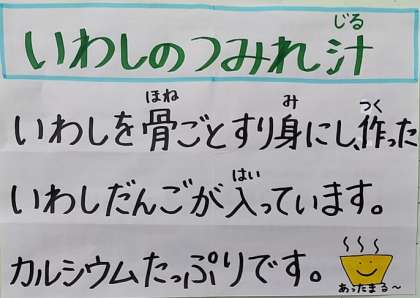 いわしのつみれ汁
じる
いわしを骨ごとすり身にし、作った
ほね
み
つく
いわしだんごが入っています。
はい
カルシウムたっぷりです。
あったまる～